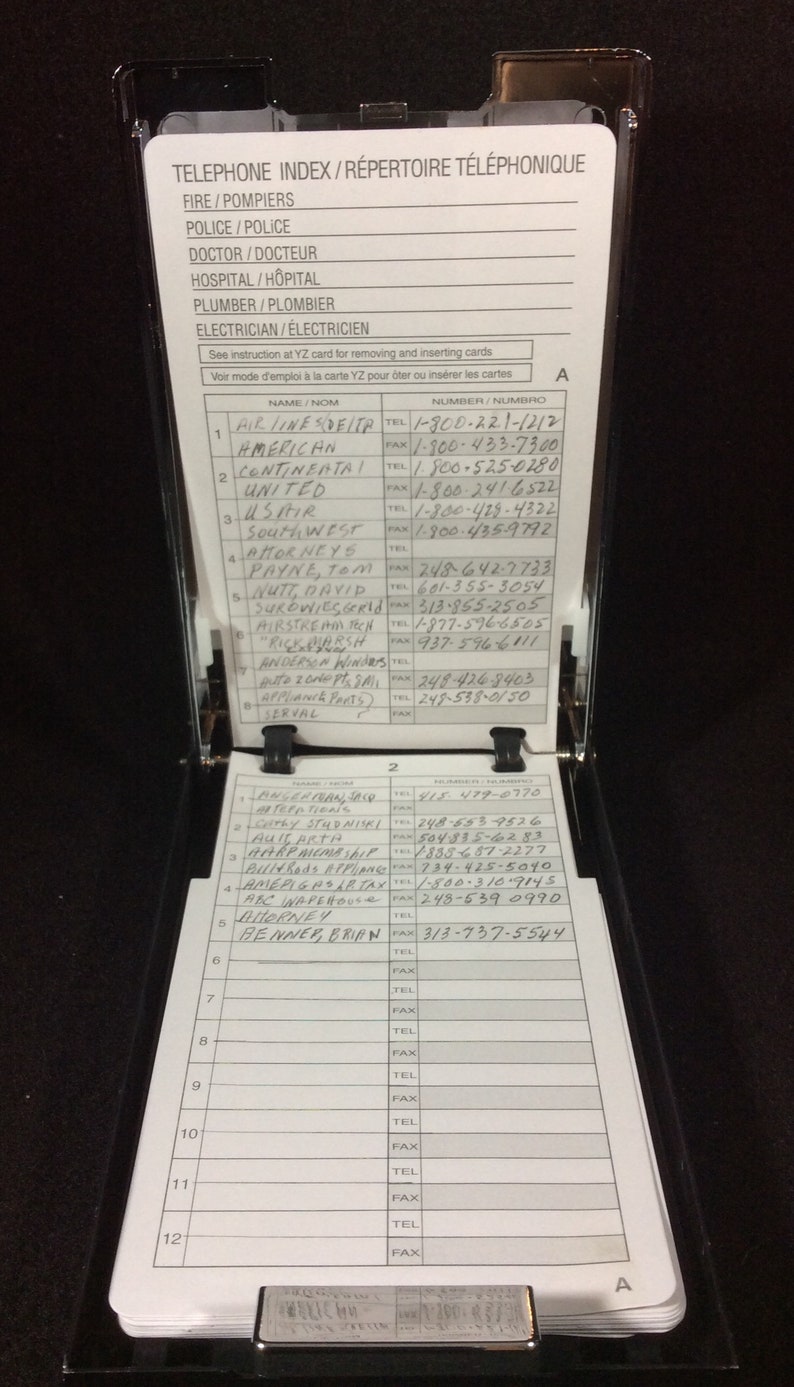 TELEPHONE INDEX / RÉPERTOIRE TÉLÉPHONIQUE
FIRE / POMPIERS
POLICE / POLiCE
DOCTOR / DOCTEUR
HOSPITAL / HÔPITAL
PLUMBER / PLOMBIER
ELECTRICIAN / ÉLECTRICIEN
See instruction at YZ card for removing and inserting cards
Voir mode d'emploi à la carte YZ pour ôter ou insérer les cartes
A
NAME / NOM NUMBER / NUMBRO
1 AIRLINES/DELTA TEL 1-800-221-1212
AMERICAN FAX 1-800-433-7300
2 CONTINENTAL TEL 1-800-525-0280
UNITED FAX 1-800-241-6522
3 USAIR TEL 1-800-428-4322
SOUTHWEST FAX 1-800-435-9792
4 ATTORNEYS TEL
PAYNE, TOM FAX 248-642-7733
5 NUTT, DAVID TEL 601-355-3054
FAX 313-855-2505
6 AIRSTREAM TECH TEL 1-877-596-6505
"RICK MARSH FAX 937-596-6111
7 ANDERSON WINDOWS TEL
AUTO ZONE FAX 248-426-8403
8 APPLIANCE PARTS) TEL 248-538-0150
SERVAL FAX
2
NAME / NOM NUMBER / NUMBRO
1 TEL 415-479-0770
ALTERATIONS FAX
2 CATHY STUDNISKI TEL 248-553-9526
AULT, ARTA FAX 504-835-6283
3 AARP MEMBSHIP TEL 1-888-687-2277
Bill+Rods APPLIANCE FAX 734-425-5040
4 AMERIGAS TAX TEL 1-800-310-9145
ABC WAREHOUSE FAX 248-539 0990
5 ATTORNEY TEL
BENNER, BRIAN FAX 313-737-5544
6 TEL
FAX
7 TEL
FAX
8 TEL
FAX
9 TEL
FAX
10 TEL
FAX
11 TEL
FAX
12 TEL
FAX
A